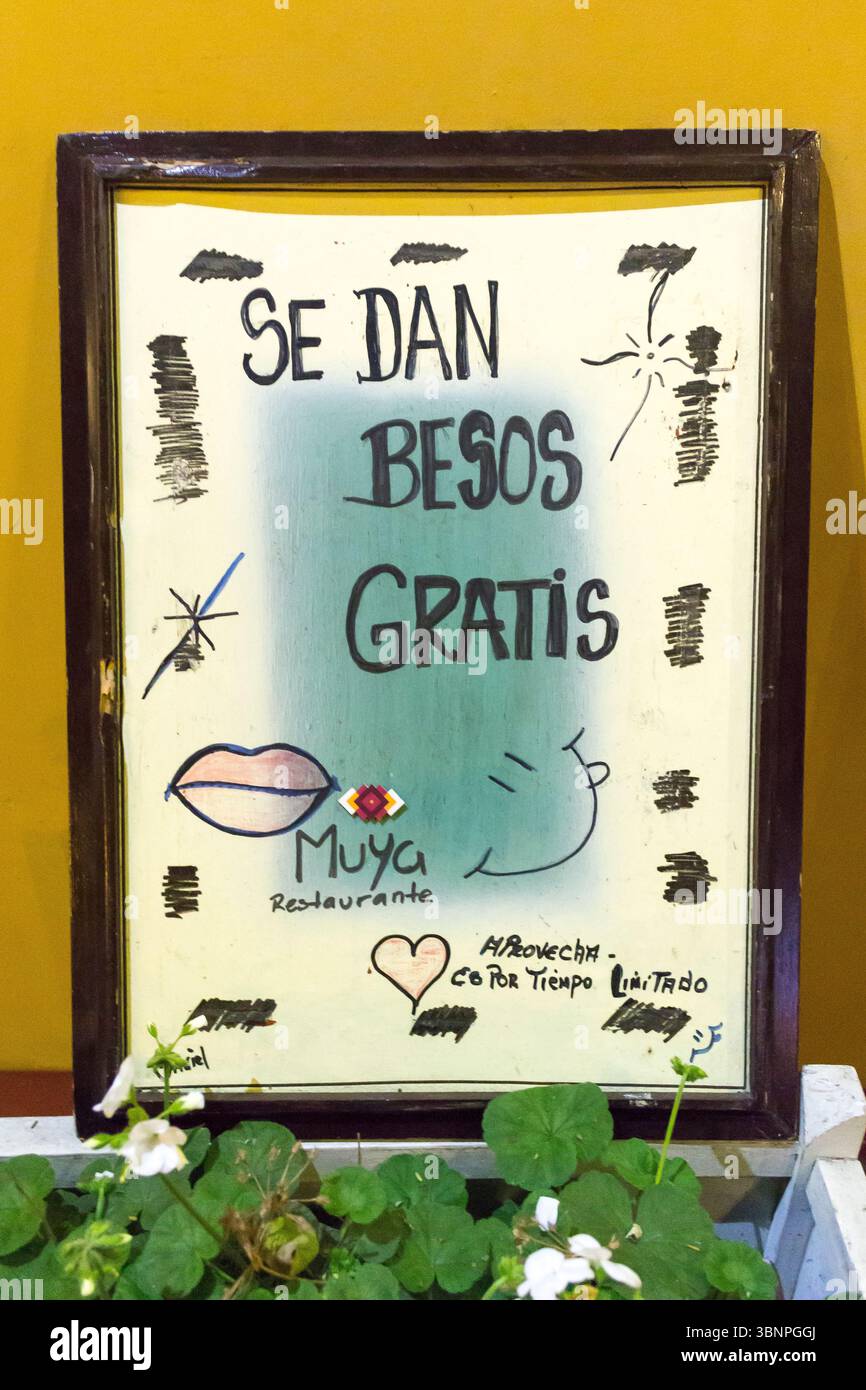 SE DAN
BESOS
GRATIS
MUYA
Restaurante
APROVECHA -
ES POR TIEMPO LIMITADO
alamy
Image ID: 3BNPGGJ
www.alamy.com